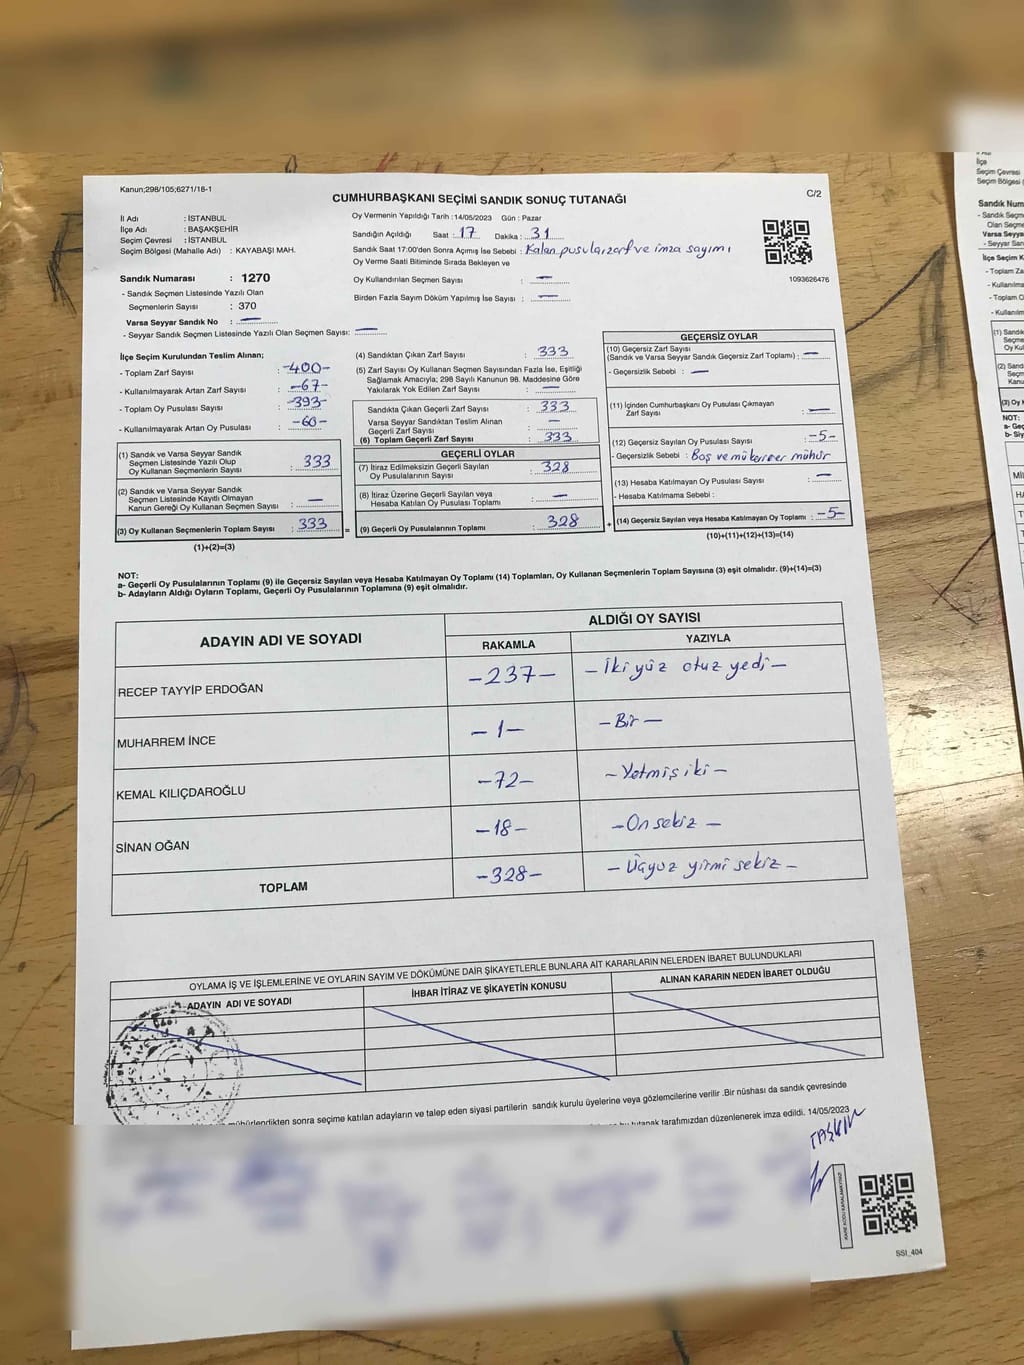 Kanun;298/105;6271/18-1
C/2
CUMHURBAŞKANI SEÇİMİ SANDIK SONUÇ TUTANAĞI
İl Adı : İSTANBUL
İlçe Adı : BAŞAKŞEHİR
Seçim Çevresi : İSTANBUL
Seçim Bölgesi (Mahalle Adı) : KAYABAŞI MAH.
Oy Vermenin Yapıldığı Tarih :14/05/2023 Gün : Pazar
Sandığın Açıldığı Saat : 17 Dakika : 31
Sandık Saat 17:00'den Sonra Açmış İse Sebebi : Kalan pusula,zarf ve imza sayımı
Oy Verme Saati Bitiminde Sırada Bekleyen ve
Oy Kullandırılan Seçmen Sayısı : —
Birden Fazla Sayım Döküm Yapılmış İse Sayısı : —
1093626476
Sandık Numarası : 1270
- Sandık Seçmen Listesinde Yazılı Olan
Seçmenlerin Sayısı : 370
Varsa Seyyar Sandık No : —
- Seyyar Sandık Listesinde Yazılı Olan Seçmen Sayısı: —
İlçe Seçim Kurulundan Teslim Alınan;
- Toplam Zarf Sayısı : -400-
- Kullanılmayarak Artan Zarf Sayısı : -67-
- Toplam Oy Pusulası Sayısı : -393-
- Kullanılmayarak Artan Oy Pusulası : -60-
(1) Sandık ve Varsa Seyyar Sandık
Seçmen Listesinde Yazılı Olup
Oy Kullanan Seçmenlerin Sayısı : 333
(2) Sandık ve Varsa Seyyar Sandık
Seçmen Listesinde Kayıtlı Olmayan
Kanun Gereği Oy Kullanan Seçmen Sayısı : —
(3) Oy Kullanan Seçmenlerin Toplam Sayısı : 333 =
(1)+(2)=(3)
(4) Sandıktan Çıkan Zarf Sayısı : 333
(5) Zarf Sayısı Oy Kullanan Seçmen Sayısından Fazla İse, Eşitliği
Sağlamak Amacıyla; 298 Sayılı Kanunun 98. Maddesine Göre
Yakılarak Yok Edilen Zarf Sayısı : —
Sandıkta Çıkan Geçerli Zarf Sayısı : 333
Varsa Seyyar Sandıktan Teslim Alınan
Geçerli Zarf Sayısı : —
(6) Toplam Geçerli Zarf Sayısı : 333
GEÇERLİ OYLAR
(7) İtiraz Edilmeksizin Geçerli Sayılan
Oy Pusulalarının Sayısı : 328
(8) İtiraz Üzerine Geçerli Sayılan veya
Hesaba Katılan Oy Pusulası Toplamı : —
(9) Geçerli Oy Pusulalarının Toplamı : 328 +
GEÇERSİZ OYLAR
(10) Geçersiz Zarf Sayısı
(Sandık ve Varsa Seyyar Sandık Geçersiz Zarf Toplamı) : —
- Geçersizlik Sebebi : —
(11) İçinden Cumhurbaşkanı Oy Pusulası Çıkmayan
Zarf Sayısı : —
(12) Geçersiz Sayılan Oy Pusulası Sayısı : -5-
- Geçersizlik Sebebi : Boş ve mükerrer mühür
(13) Hesaba Katılmayan Oy Pusulası Sayısı : —
- Hesaba Katılmama Sebebi :
(14) Geçersiz Sayılan veya Hesaba Katılmayan Oy Toplamı : -5-
(10)+(11)+(12)+(13)=(14)
NOT:
a- Geçerli Oy Pusulalarının Toplamı (9) ile Geçersiz Sayılan veya Hesaba Katılmayan Oy Toplamı (14) Toplamları, Oy Kullanan Seçmenlerin Toplam Sayısına (3) eşit olmalıdır. (9)+(14)=(3)
b- Adayların Aldığı Oyların Toplamı, Geçerli Oy Pusulalarının Toplamına (9) eşit olmalıdır.
ADAYIN ADI VE SOYADI
ALDIĞI OY SAYISI
RAKAMLA YAZIYLA
RECEP TAYYİP ERDOĞAN -237- -İki yüz otuz yedi-
MUHARREM İNCE -1- -Bir-
KEMAL KILIÇDAROĞLU -72- -Yetmiş iki-
SİNAN OĞAN -18- -On sekiz-
TOPLAM -328- -Üçyüz yirmi sekiz-
OYLAMA İŞ VE İŞLEMLERİNE VE OYLARIN SAYIM VE DÖKÜMÜNE DAİR ŞİKAYETLERLE BUNLARA AİT KARARLARIN NELERDEN İBARET BULUNDUKLARI
ADAYIN ADI VE SOYADI İHBAR İTİRAZ VE ŞİKAYETİN KONUSU ALINAN KARARIN NEDEN İBARET OLDUĞU
mühürlendikten sonra seçime katılan adayların ve talep eden siyasi partilerin sandık kurulu üyelerine veya gözlemcilerine verilir .Bir nüshası da sandık çevresinde
bu tutanak tarafımızdan düzenlenerek imza edildi. 14/05/2023
TAŞKIN
KARE KODU KARALAMAYINIZ!
SSI_404
İlçe
Seçim Çevresi
Seçim Bölgesi
Sandık Num
- Sandık Seçm
Olan Seçme
Varsa Seyya
- Seyyar San
İlçe Seçim K
- Toplam Za
- Kullanılma
- Toplam O
- Kullanılm